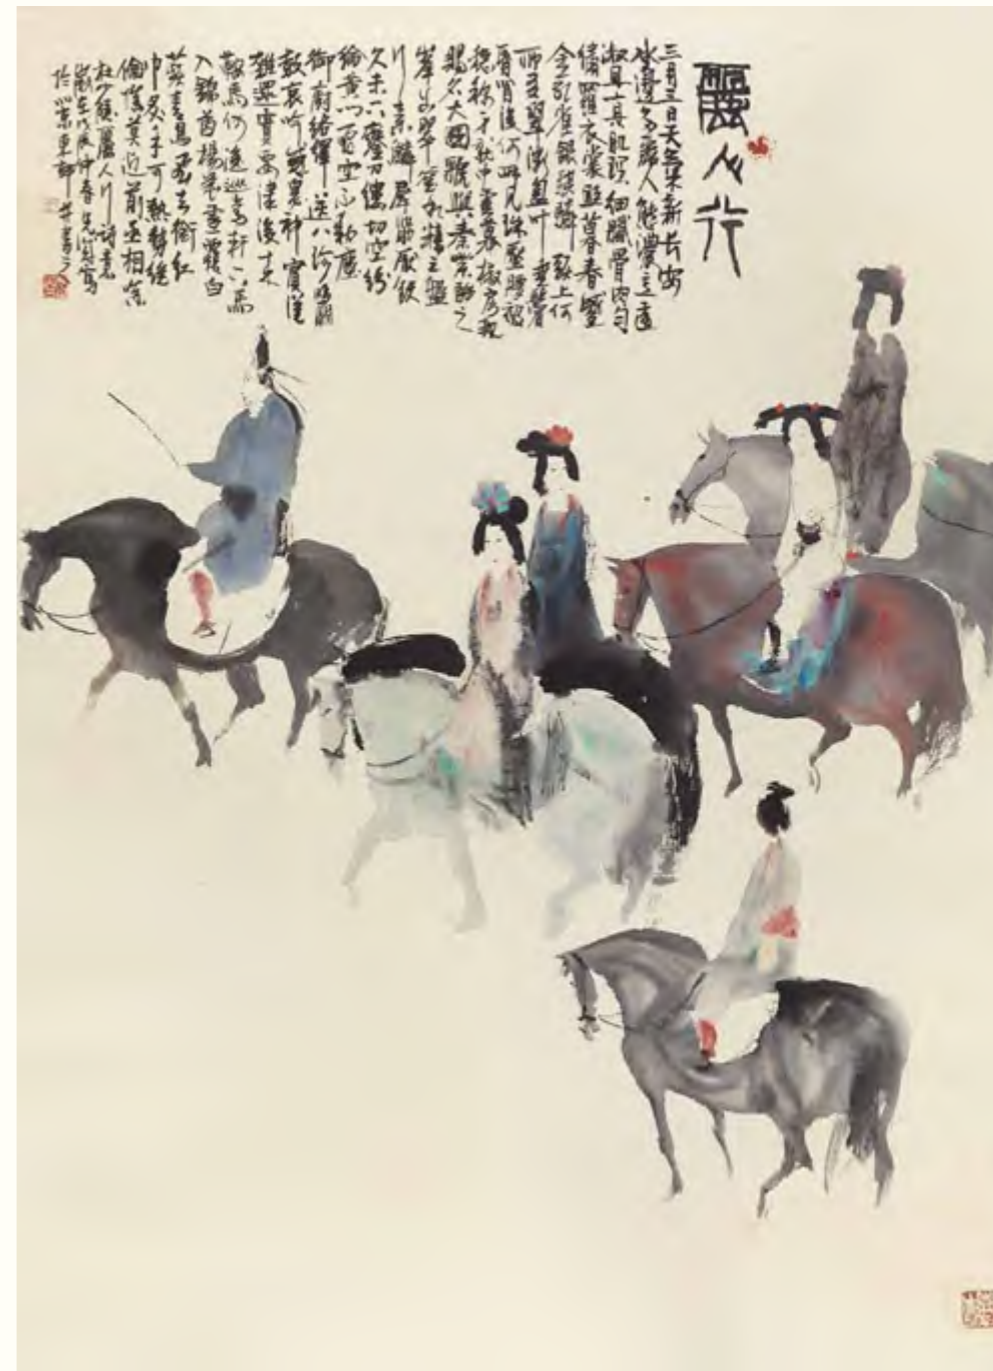 麗人行
三月三日天氣新長安
水邊多麗人態濃意遠
淑且真肌理細膩骨肉勻
繡羅衣裳照暮春蹙
金孔雀銀麒麟頭上何
所有翠微盍葉垂鬢
唇背後何所見珠壓腰衱
穩稱身就中雲幕椒房親
賜名大國虢與秦紫駝之
峯出翠釜水精之盤
行素鱗犀箸厭飫
久未下鸞刀縷切空紛
綸黃門飛鞚不動塵
御廚絡繹送八珍簫鼓
鼓哀吟感鬼神賓從
雜遝實要津後來
鞍馬何逡巡當軒下馬
入錦茵楊花雪落覆白
蘋青鳥飛去銜紅
巾炙手可熱勢絕
倫慎莫近前丞相嗔
杜少陵麗人行詩意
歲在戊辰仲春寫
於東郊并書